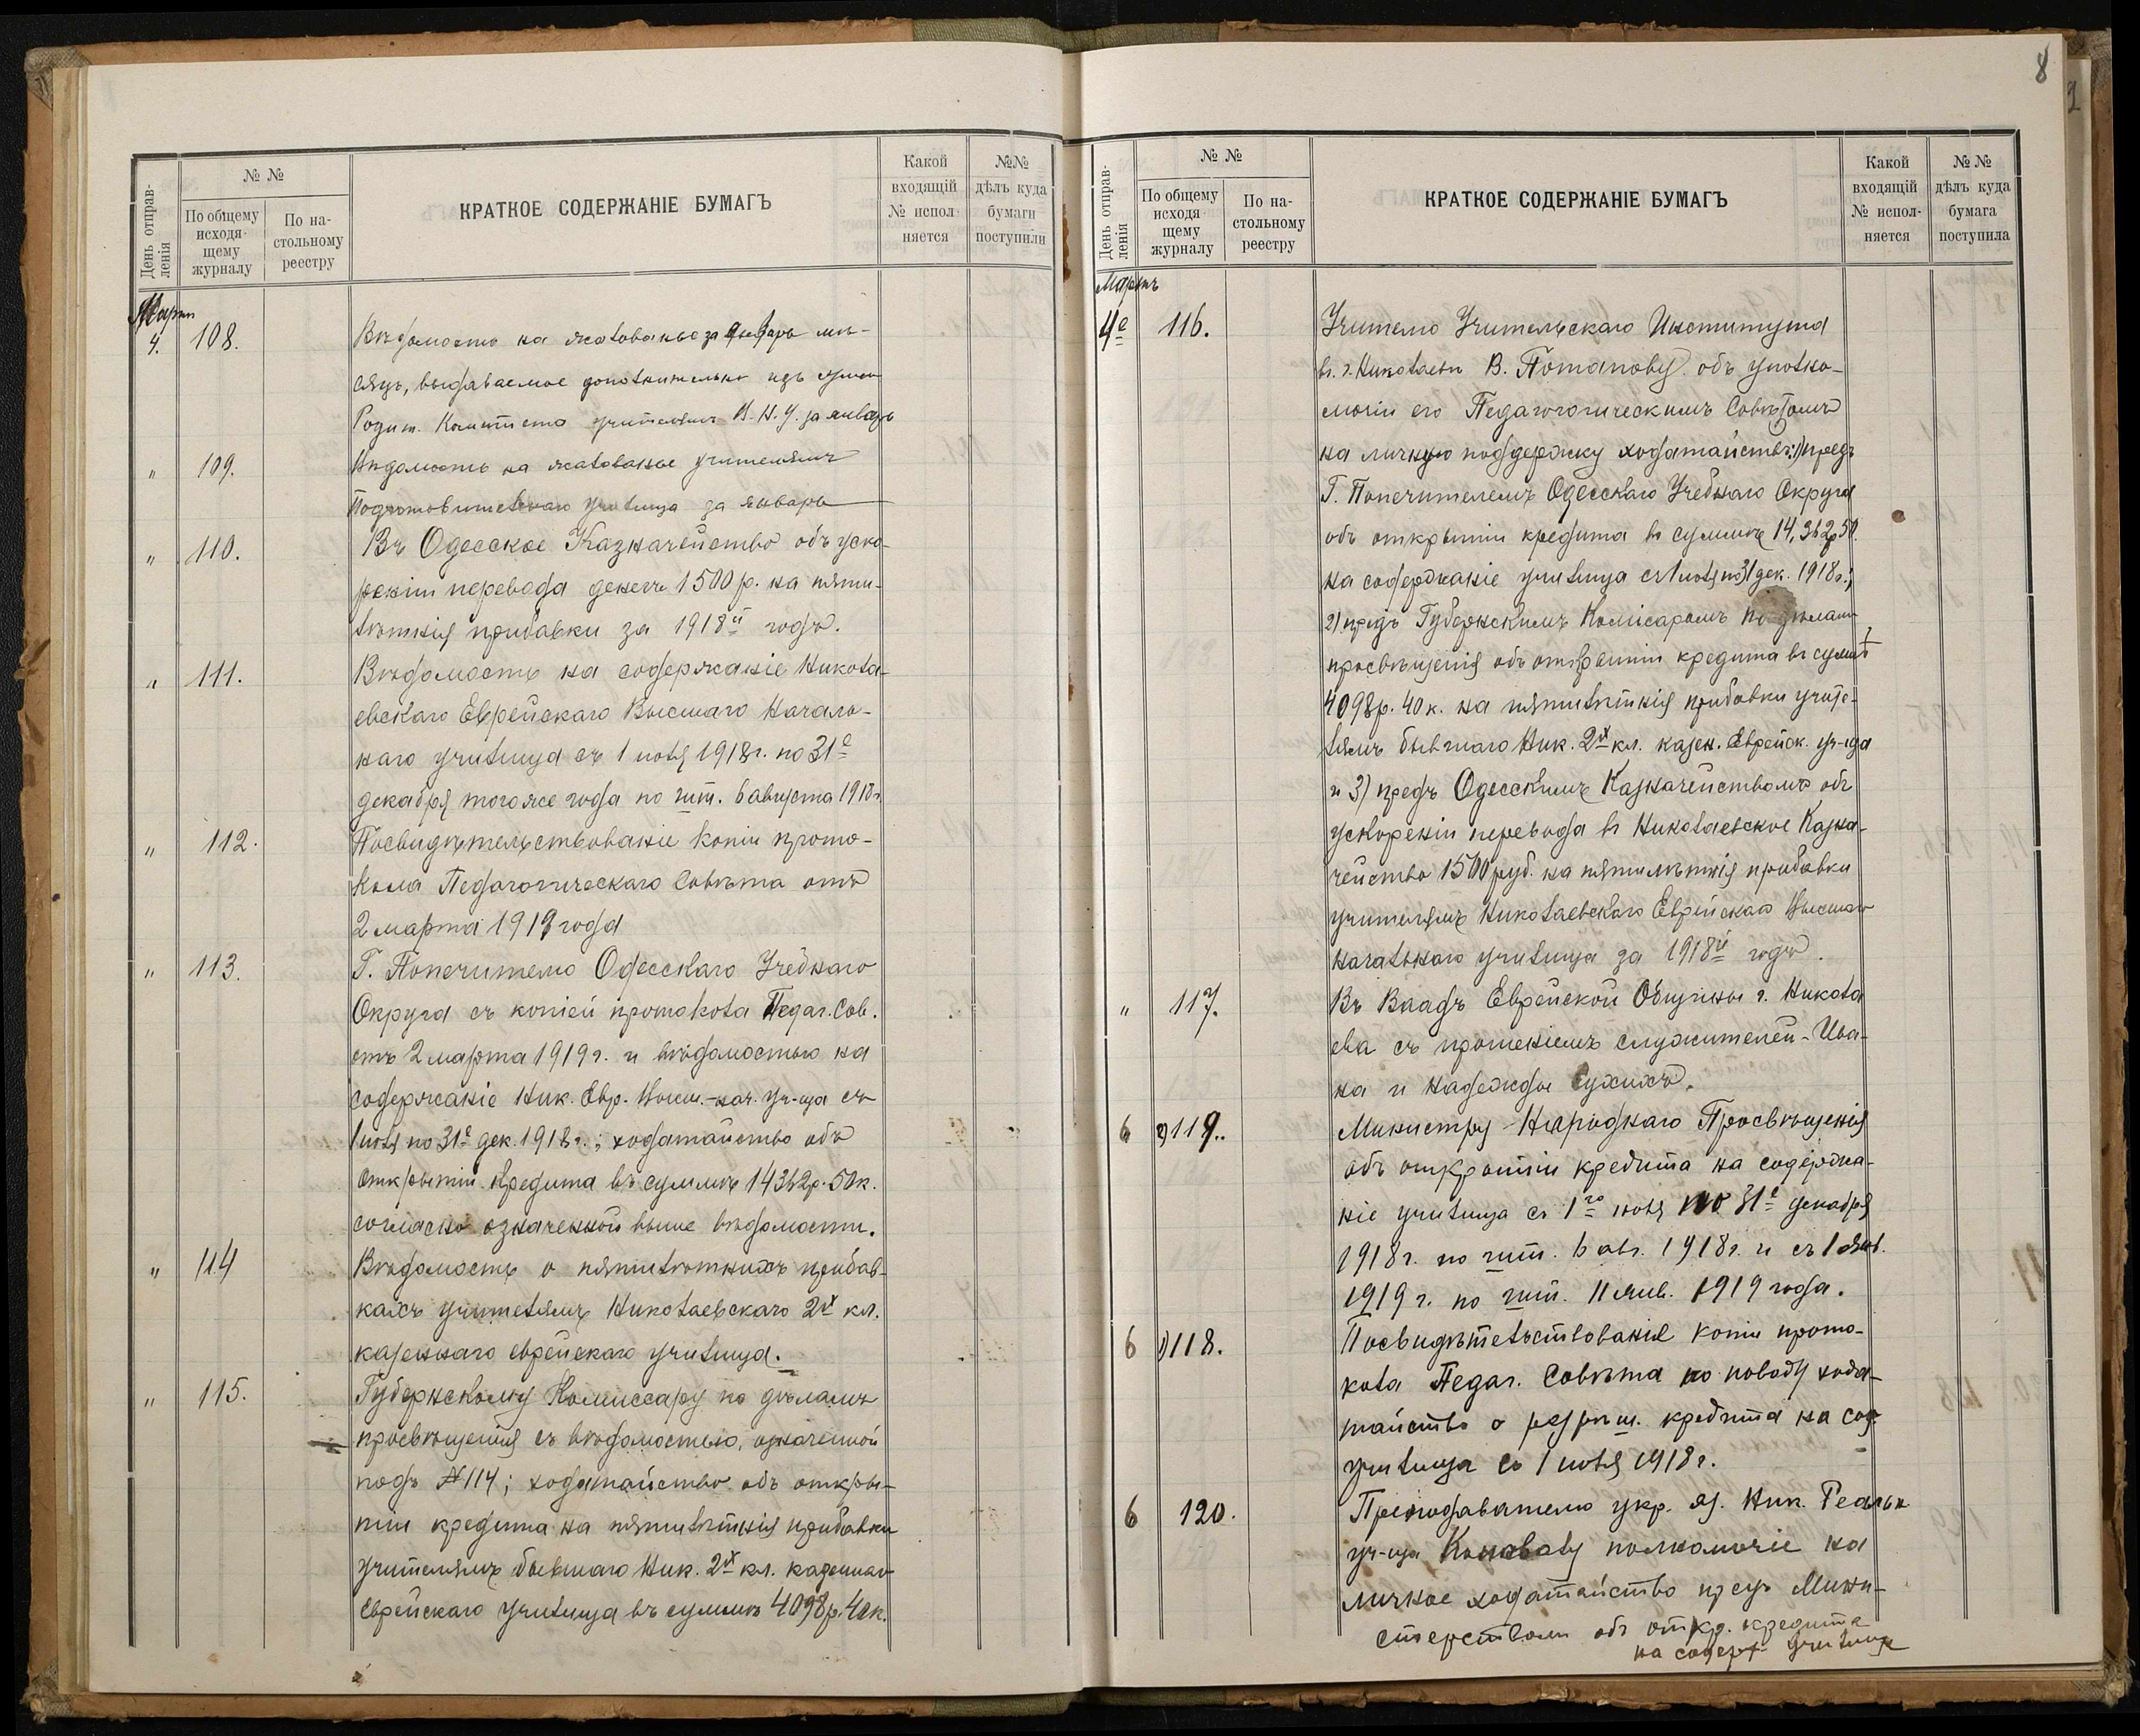 8
День отправ-
ленія
№ №
По общему
исходя-
щему
журналу
По на-
стольному
реестру
КРАТКОЕ СОДЕРЖАНІЕ БУМАГЪ
Какой
входящій
№ испол
няется
№№
дѣлъ куда
бумаги
поступили
Мартъ
4. 108. Вѣдомость на жалованье за январь мѣ-
сяцъ, выдаваемое дополнительно изъ сумм
Родит. Комитета учителямъ за январь
" 109. Вѣдомость на жалованье учителямъ
Подготовительнаго училища за январь
" 110. Въ Одесское Казначейство объ уско-
реніи перевода денегъ 1500 р. на пяти-
лѣтнія прибавки за 1918й годъ.
" 111. Вѣдомость на содержаніе Никола-
евскаго Еврейскаго Высшаго Началь-
наго училища съ 1 іюля 1918 г. по 31е
декабря того же года по шт. 6 августа 1918 г.
" 112. Посвидѣтельствованіе копіи прото-
кола Педагогическаго Совѣта отъ
2 марта 1919 года
" 113. Г. Попечителю Одесскаго Учебнаго
Округа съ копіей протокола Педаг. Сов.
отъ 2 марта 1919 г. и вѣдомостью на
содержаніе Ник. Евр. Высш.-нач. Уч-ща съ
1 іюля по 31е дек. 1918 г.; ходатайство объ
открытіи кредита въ суммѣ 14362 р. 50 к.
согласно означенной выше вѣдомости.
" 114 Вѣдомость о пятилѣтнихъ прибав-
кахъ учителямъ Николаевскаго 2х кл.
казеннаго еврейскаго училища.
" 115. Губернскому Комиссару по дѣламъ
просвѣщенія съ вѣдомостью, означенной
подъ № 114; ходатайство объ откры-
тіи кредита на пятилѣтнія прибавки
учителямъ бывшаго Ник. 2х кл. казеннаго
Еврейскаго Училища въ суммѣ 4098 р. 40 к.
День отправ-
ленія
№ №
По общему
исходя-
щему
журналу
По на-
стольному
реестру
КРАТКОЕ СОДЕРЖАНІЕ БУМАГЪ
Какой
входящій
№ испол-
няется
№ №
дѣлъ куда
бумага
поступила
Мартъ
4е 116. Учителю Учительскаго Института
въ г. Николаевѣ В. Потапову объ уполно-
мочіи его Педагогическимъ Совѣтомъ
на личную поддержку ходатайствъ: 1) предъ
Г. Попечителемъ Одесскаго Учебнаго Округа
объ открытіи кредита въ суммѣ 14,362 р 50.
на содержаніе училища съ 1 іюля по 31 дек. 1918 г.;
2) предъ Губернскимъ Комісаромъ по дѣламъ
просвѣщенія объ открытіи кредита въ суммѣ
4098 р. 40 к. на пятилѣтнія прибавки учите-
лямъ бывшаго Ник. 2х кл. казен. Еврейск. уч-ща
и 3) предъ Одесскимъ Казначействомъ объ
ускореніи перевода въ Николаевское Казна-
чейство 1500 руб. на пятилѣтнія прибавки
учителямъ Николаевскаго Еврейскаго Высшаго
начальнаго училища за 1918й годъ.
" 117. Въ Ваадъ Еврейской Общины г. Никола
ева съ прошеніемъ служителей - Ива-
на и Надежды Сухихъ.
6 2) 119. Министру Народнаго Просвѣщенія
объ открытіи кредита на содержа-
ніе училища съ 1го іюля по 31е декабря
1918 г. по шт. 6 авг. 1918 г. и съ 1 янв.
1919 г. по шт. 11 янв. 1919 года.
6 1) 118. Посвидѣтельствованія копіи прото-
кола Педаг. Совѣта по поводу хода-
тайство о разрѣш. кредита на сод
училища съ 1 іюля 1918 г.
6 120. Преподавателю укр. яз. Ник. Реальн
уч-ща Коновалу полномочіе на
личное ходатайство предъ Мини-
стерством объ откр. кредита
на содерж училища